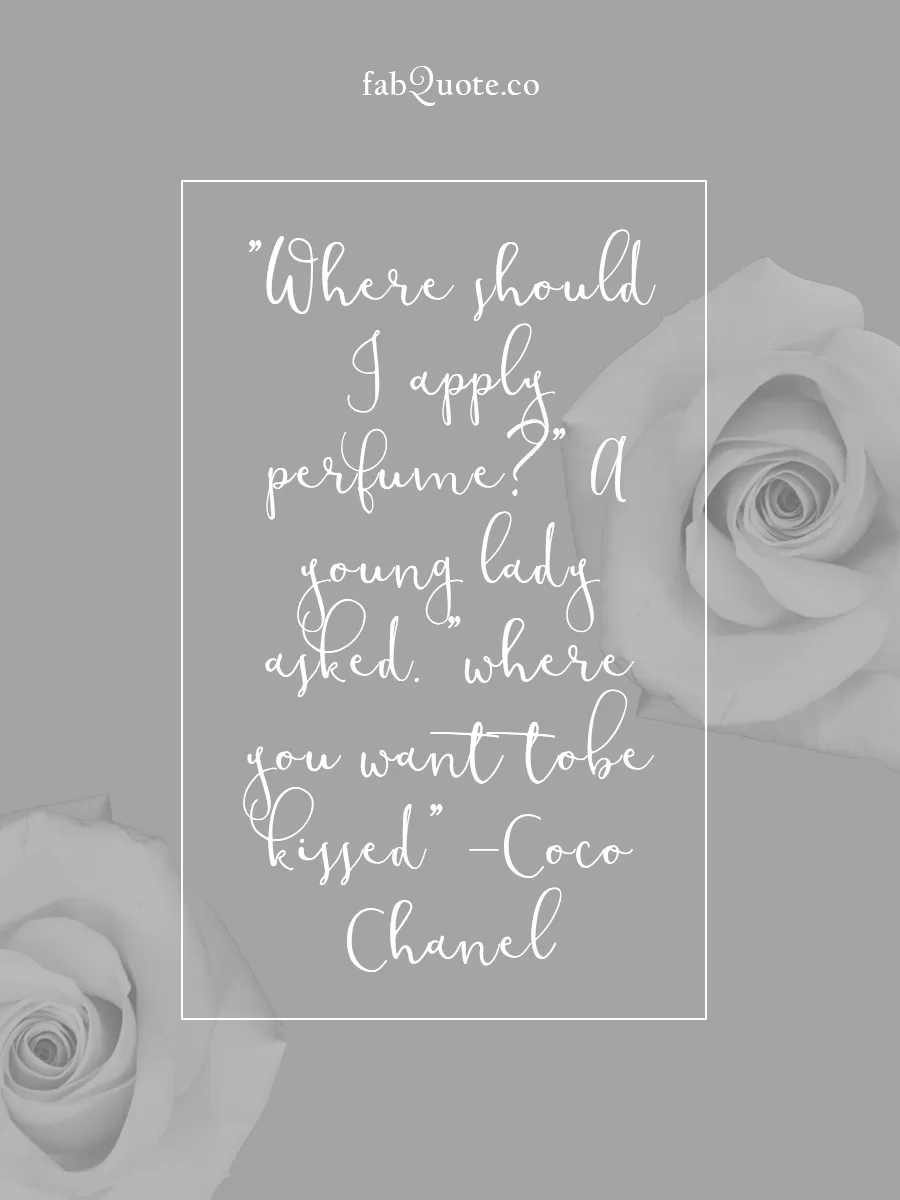 fabQuote.co
"Where should
I apply
perfume?" A
young lady
asked. "where
you want tobe
kissed" –Coco
Chanel